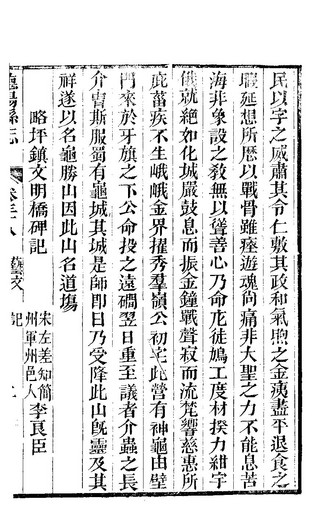 民以字之威肅其令仁敷其政和氣煦之金夷盡平退食之
暇延想所歷以戰骨雖瘞遊魂尚痛非大聖之力不能息苦
海非象設之教無以聳善心乃命尨徒鳩工度材揆力紺宇
俄就絕如化城嚴鼓息而振金鐘戰聲寂而流梵響慈惠所
庇葘疾不生峨峨金界擢秀羣嶺公初宅此營有神龜由壁
門來於牙旗之下公命投之遠磵翌日重至議者介蟲之長
介冑斯服蜀有龜城其城是師即日乃受降此山既靈及其
祥遂以名龜勝山因此山名道塲
略坪鎮文明橋碑記
宋左差知簡
州軍州邑人
李良臣
縣志
卷三八
藝文
記